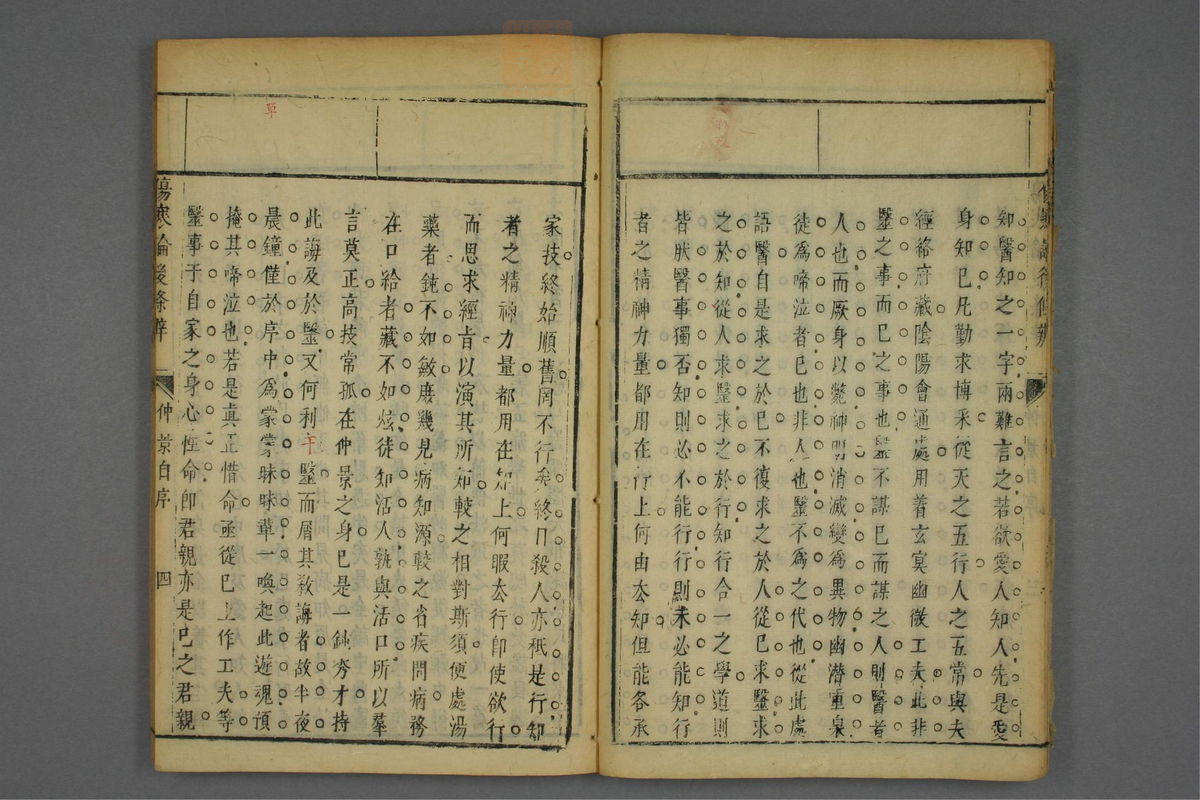 知醫知之一字兩難言之若欲愛人知人先是愛
身知己凡勤求博采從天之五行人之五常與夫
經絡府藏陰陽會通處用着玄冥幽微工夫此非
毉之事而已之事也毉不謀已而謀之人則醫者
人也而厥身以斃神明消滅變爲異物幽潜重泉
徒爲啼泣者已也非人也毉不爲之代也從此處
語醫自是求之於已不復求之於人從已求毉求
之於知從人求毉求之於行知行合一之學道則
皆肰醫事獨否知則必不能行行則未必能知行
者之精神力量都用在行上何由厺知但能各承
家技終始順舊罔不行矣終日殺人亦秪是行知
者之精神力量都用在知上何暇厺行卽使欲行
而思求經旨以演其所知較之相對斯須便處湯
藥者鈍不如敏庻幾見病知源較之省疾問病務
在口給者藏不如炫徒知活人孰與活口所以羣
言莫正高技常孤在仲景之身已是一鈍夯才持
此誨及於毉又何利于毉而屑其敎誨者故半夜
晨鐘僅於序中爲蒙蒙昧昧輩一喚起此遊魂頂
掩其啼泣也若是眞正惜命亟從已上作工夫等
毉事于自家之身心性命卽君親亦是已之君親
傷寒論後條辨
仲景自序
四
草